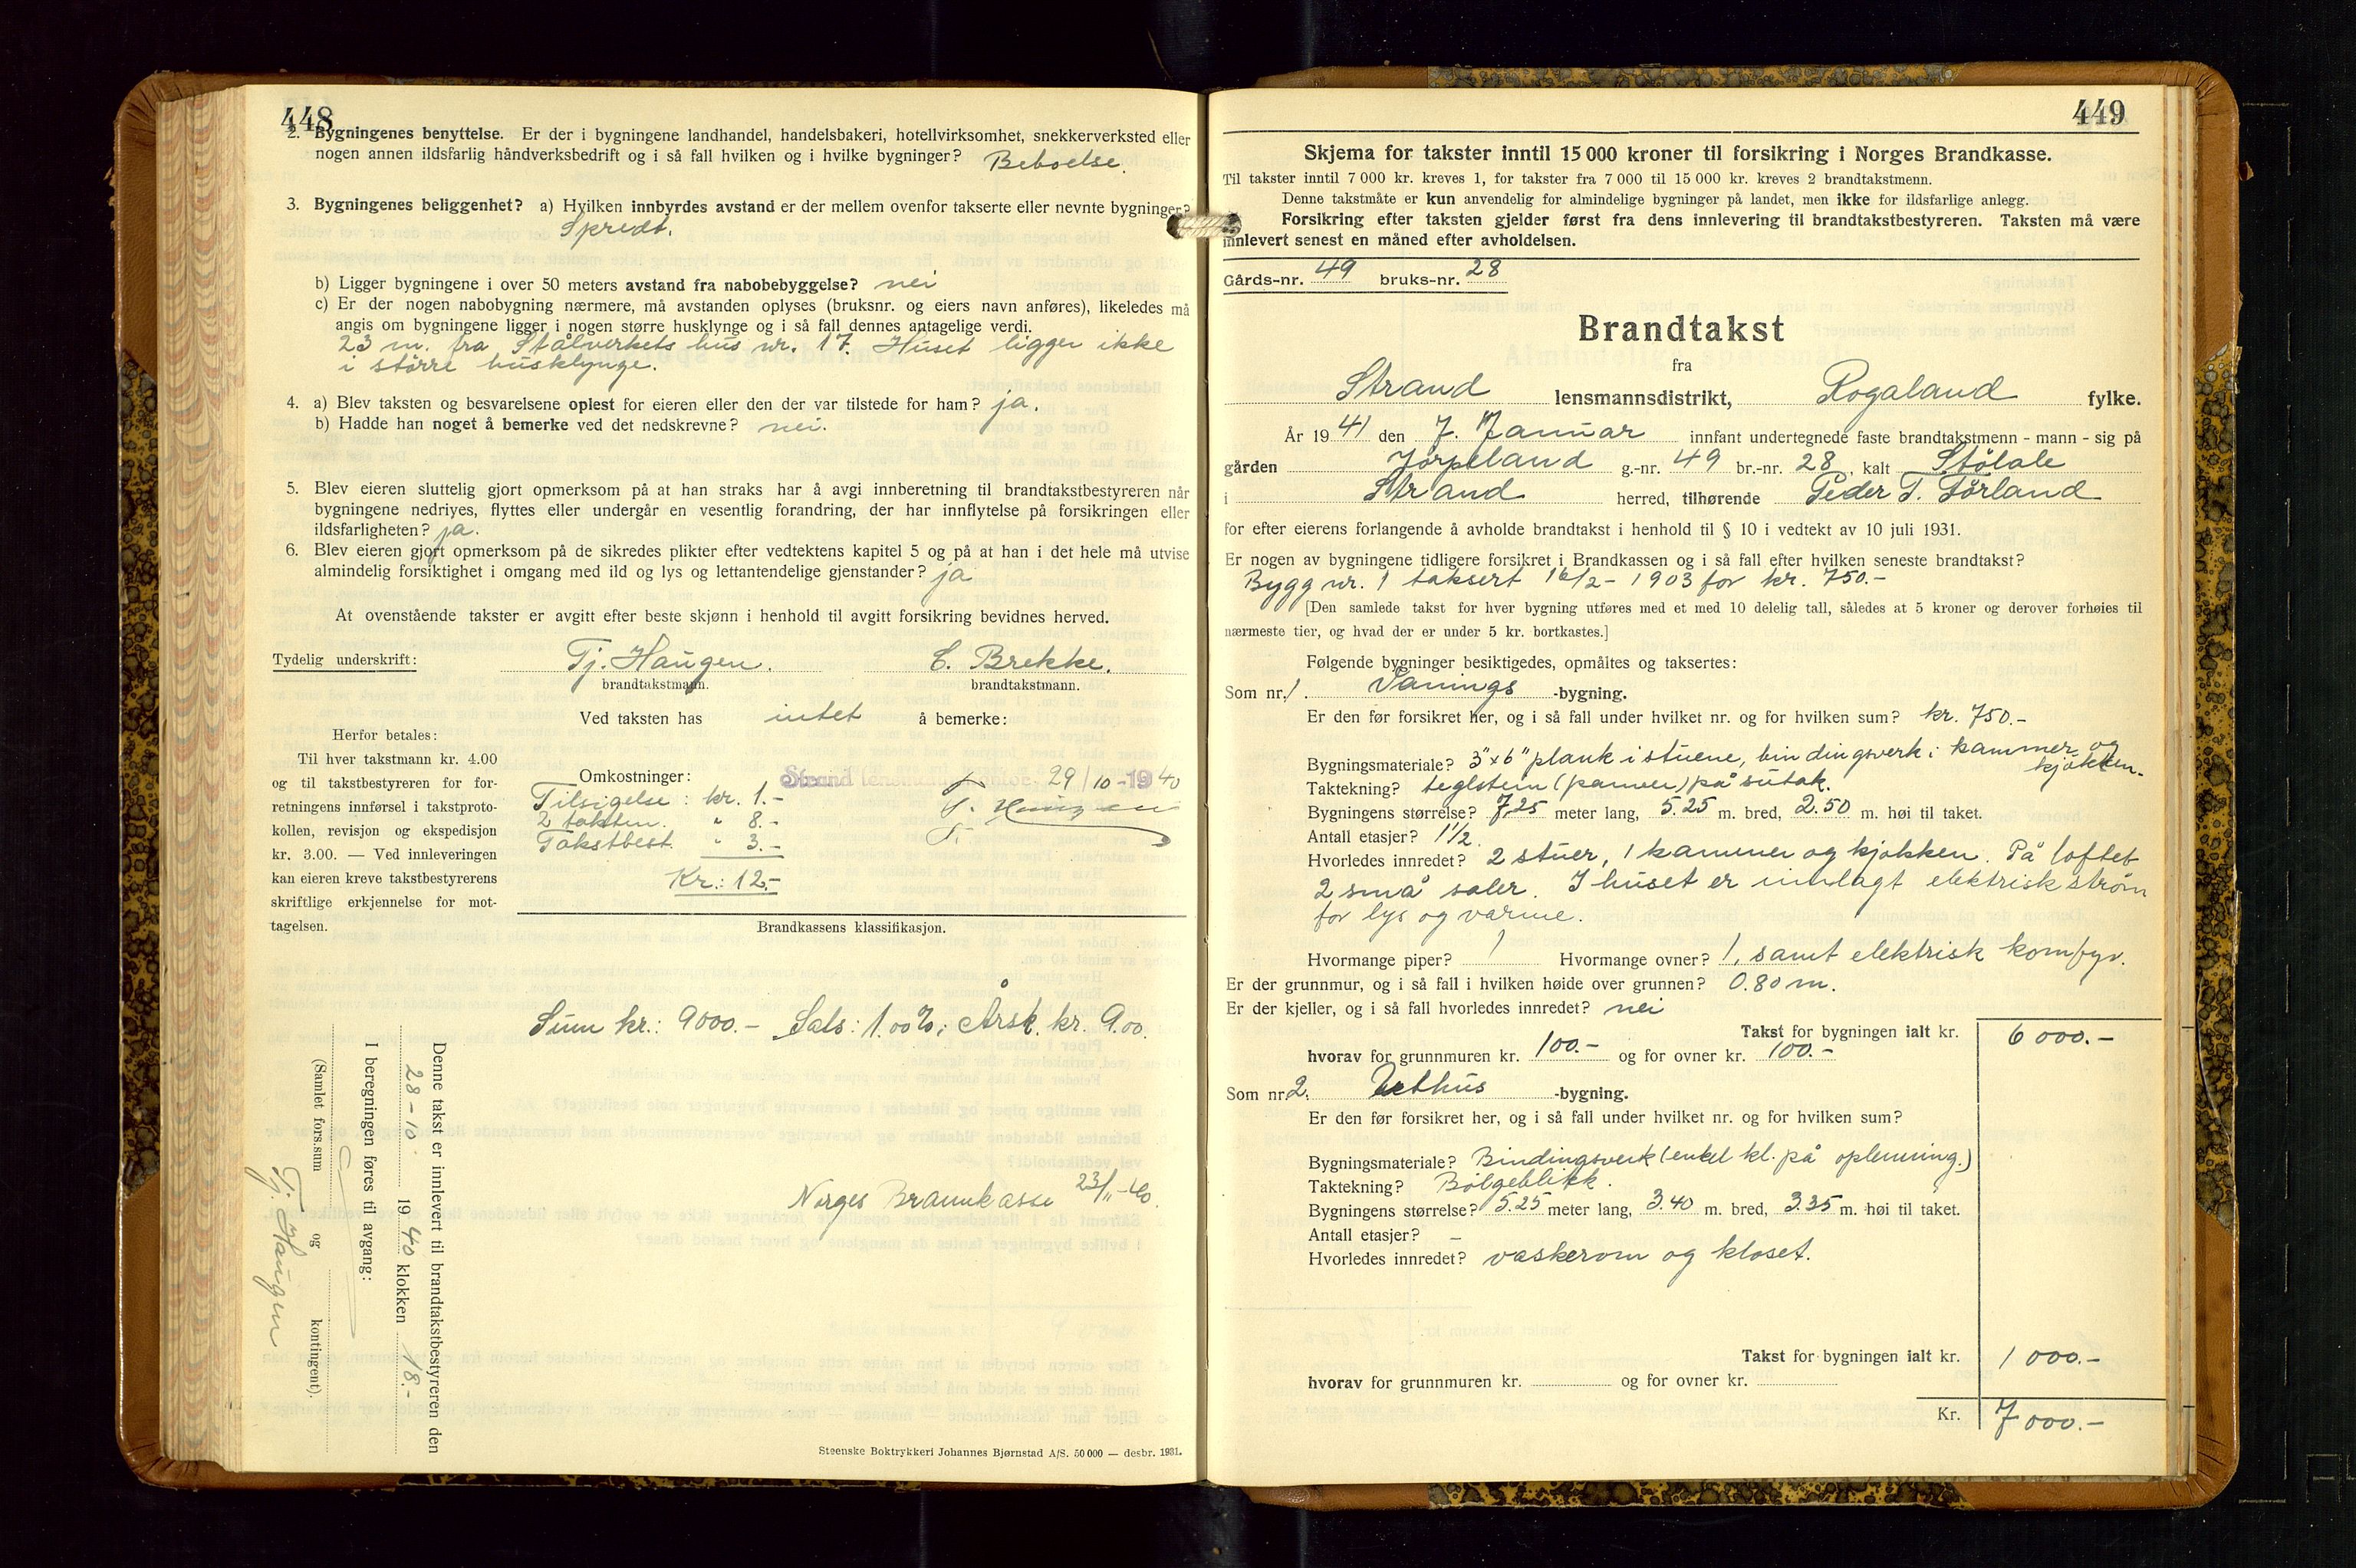 448
2. Bygningenes benyttelse. Er der i bygningene landhandel, handelsbakeri, hotellvirksomhet, snekkerverksted eller
nogen annen ildsfarlig håndverksbedrift og i så fall hvilken og i hvilke bygninger? Beboelse.
3. Bygningenes beliggenhet? a) Hvilken innbyrdes avstand er der mellem ovenfor takserte eller nevnte bygninger?
Spredt.
b) Ligger bygningene i over 50 meters avstand fra nabobebyggelse? nei
c) Er der nogen nabobygning nærmere, må avstanden oplyses (bruksnr. og eiers navn anføres), likeledes må
angis om bygningene ligger i nogen større husklynge og i så fall dennes antagelige verdi.
23 m. fra Stålverkets hus nr. 17. Huset ligger ikke
i større husklynge.
4. a) Blev taksten og besvarelsene oplest for eieren eller den der var tilstede for ham? ja.
b) Hadde han noget å bemerke ved det nedskrevne? nei.
5. Blev eieren sluttelig gjort opmerksom på at han straks har å avgi innberetning til brandtakstbestyreren når
bygningene nedrives, flyttes eller undergår en vesentlig forandring, der har innflytelse på forsikringen eller
ildsfarligheten? ja.
6. Blev eieren gjort opmerksom på de sikredes plikter efter vedtektens kapitel 5 og på at han i det hele må utvise
almindelig forsiktighet i omgang med ild og lys og lettantendelige gjenstander? ja
At ovenstående takster er avgitt efter beste skjønn i henhold til avgitt forsikring bevidnes herved.
Tydelig underskrift: Tj. Haugen. C. Brekke.
brandtakstmann. brandtakstmann.
Ved taksten has intet å bemerke:
Herfor betales:
Til hver takstmann kr. 4.00
og til takstbestyreren for for-
retningens innførsel i takstproto-
kollen, revisjon og ekspedisjon
kr. 3.00. — Ved innleveringen
kan eieren kreve takstbestyrerens
skriftlige erkjennelse for mot-
tagelsen.
Omkostninger:
Tilsigelse: kr. 1.-
2 takstm. " 8.-
Takstbest. " 3.-
Kr.: 12.-
Strand lensmannskontor 29/10-1940
T. Haugen
Brandkassens klassifikasjon.
Sum kr.: 9000.- Sats: 1.00‰; Årsk. kr. 9.00.
Norges Brannkasse 23/11-40.
Denne takst er innlevert til brandtakstbestyreren den
28-10. 1940 klokken 18.-
I beregningen føres til avgang:
(Samlet fors.sum og kontingent).
Tj. Haugen
Steenske Boktrykkeri Johannes Bjørnstad A/S. 50 000 — desbr. 1931.
449
Skjema for takster inntil 15 000 kroner til forsikring i Norges Brandkasse.
Til takster inntil 7 000 kr. kreves 1, for takster fra 7 000 til 15 000 kr. kreves 2 brandtakstmenn.
Denne takstmåte er kun anvendelig for almindelige bygninger på landet, men ikke for ildsfarlige anlegg.
Forsikring efter taksten gjelder først fra dens innlevering til brandtakstbestyreren. Taksten må være
innlevert senest en måned efter avholdelsen.
Gårds-nr. 49 bruks-nr. 28
Brandtakst
fra
Strand lensmannsdistrikt, Rogaland fylke.
År 1941 den 7. Januar innfant undertegnede faste brandtakstmenn - mann - sig på
gården Jørpeland g.-nr. 49 br.-nr. 28, kalt Stølale
i Strand herred, tilhørende Peder T. Førland
for efter eierens forlangende å avholde brandtakst i henhold til § 10 i vedtekt av 10 juli 1931.
Er nogen av bygningene tidligere forsikret i Brandkassen og i så fall efter hvilken seneste brandtakst?
Bygg nr. 1 taksert 16/2-1903 for kr. 750.-
[Den samlede takst for hver bygning utføres med et med 10 delelig tall, således at 5 kroner og derover forhøies til
nærmeste tier, og hvad der er under 5 kr. bortkastes.]
Følgende bygninger besiktigedes, opmåltes og taksertes:
Som nr. 1. Vånings -bygning.
Er den før forsikret her, og i så fall under hvilket nr. og for hvilken sum? kr. 750.-
Bygningsmateriale? 3"x6" plank i stuene, bindingsverk i kammer og
kjøkken.
Taktekning? teglstein (panner) på sutak.
Bygningens størrelse? 7.25 meter lang, 5.25 m. bred, 2.50 m. høi til taket.
Antall etasjer? 1½.
Hvorledes innredet? 2 stuer, 1 kammer og kjøkken. På loftet
2 små saler. I huset er innlagt elektrisk strøm
for lys og varme.
Hvormange piper? 1 Hvormange ovner? 1, samt elektrisk komfyr.
Er der grunnmur, og i så fall i hvilken høide over grunnen? 0.80 m.
Er der kjeller, og i så fall hvorledes innredet? nei
Takst for bygningen ialt kr. 6 000.-
hvorav for grunnmuren kr. 100.- og for ovner kr. 100.-
Som nr. 2. Uthus -bygning.
Er den før forsikret her, og i så fall under hvilket nr. og for hvilken sum?
Bygningsmateriale? Bindingsverk (enkel kl. på oplenning.)
Taktekning? Bølgeblikk.
Bygningens størrelse? 5.25 meter lang, 3.40 m. bred, 3.35 m. høi til taket.
Antall etasjer? -
Hvorledes innredet? vaskerom og kloset.
Takst for bygningen ialt kr. 1 000.-
hvorav for grunnmuren kr. og for ovner kr.
Kr. 7 000.-